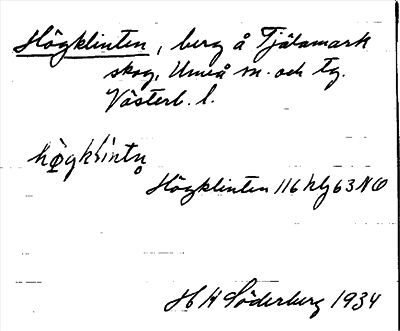 Högklinten, berg å Tjälamark
skog, Umeå sn. och tg.
Västerb. l.
Högklinten 116 hlg 63 NO
H H Söderberg 1934